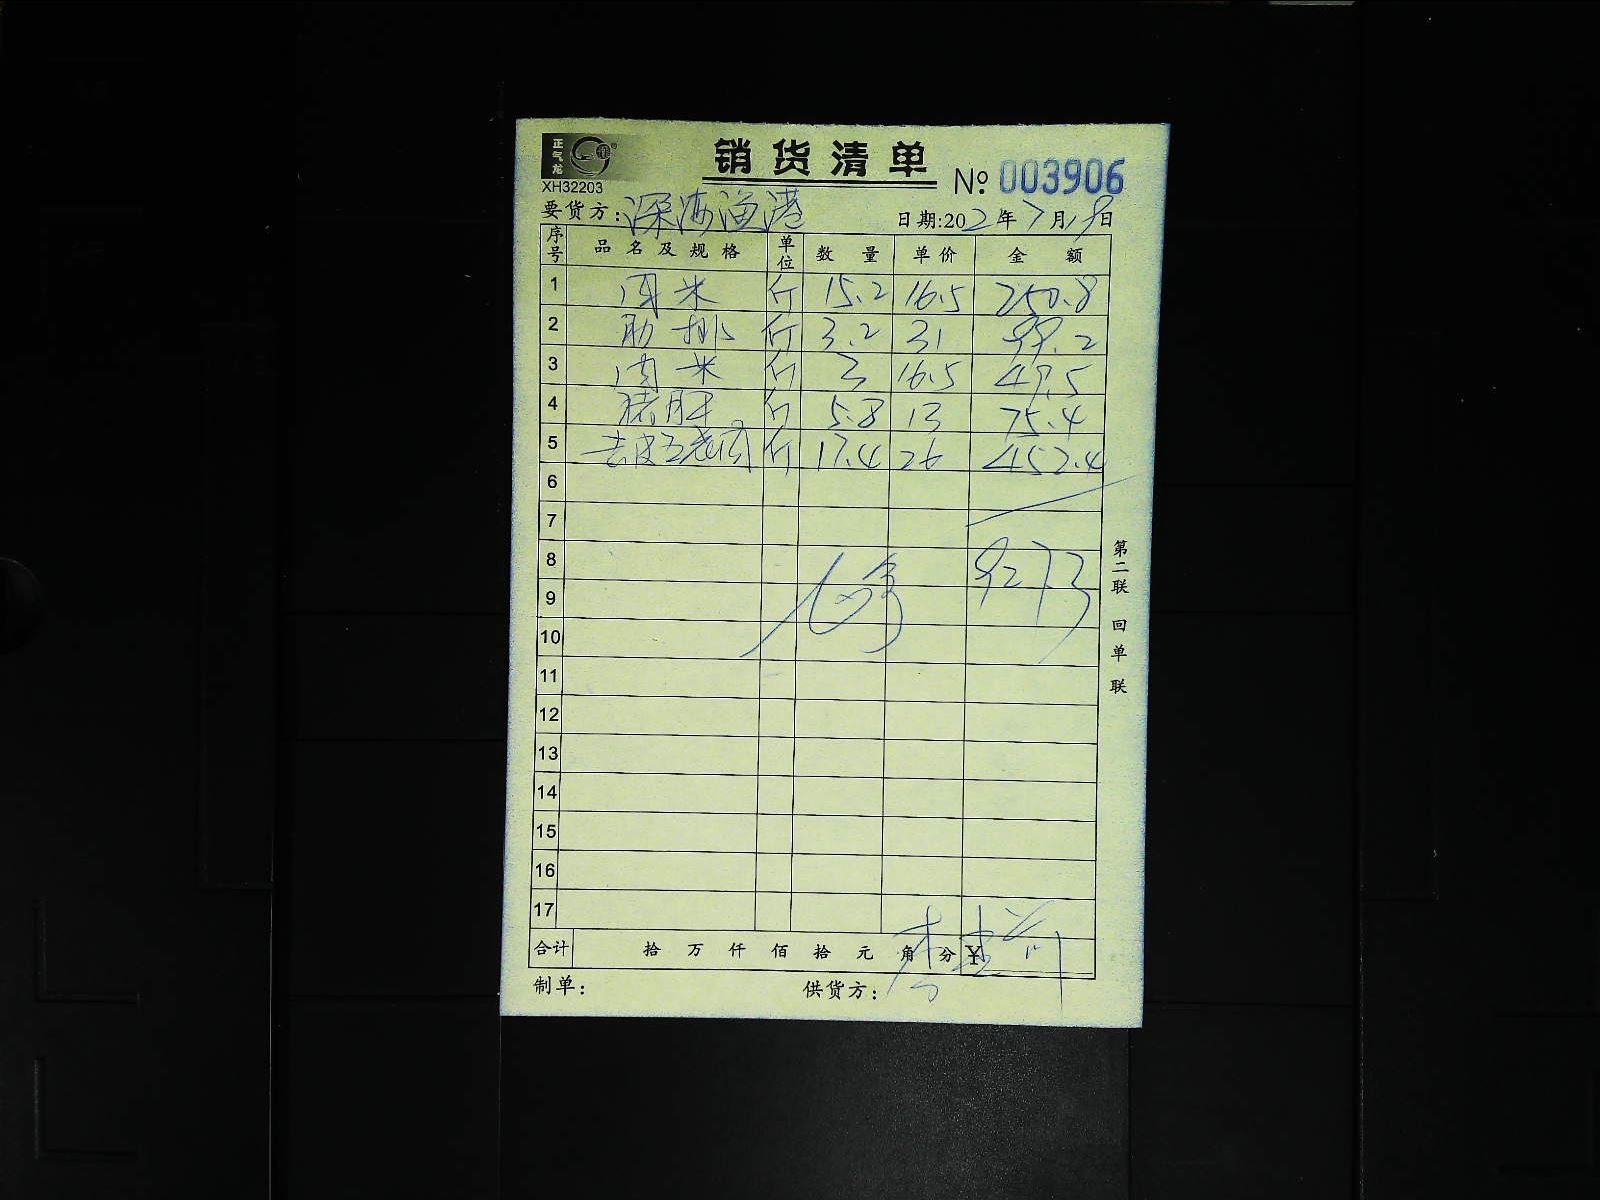 正气龙
XH32203
销货清单
№ 003906
要货方: 深海渔港
日期:2022年7月19日
序号 品名及规格 单位 数量 单价 金额
1 肉米 斤 15.2 16.5 250.8
2 肋排 斤 3.2 31 99.2
3 肉米 斤 3 16.5 49.5
4 猪肝 斤 5.8 13 75.4
5 去皮五花肉 斤 17.4 26 452.4
6
7
8 927.3
9
10
11
12
13
14
15
16
17
合计 拾 万 仟 佰 拾 元 角 分 ¥
制单: 供货方:
第二联 回单联